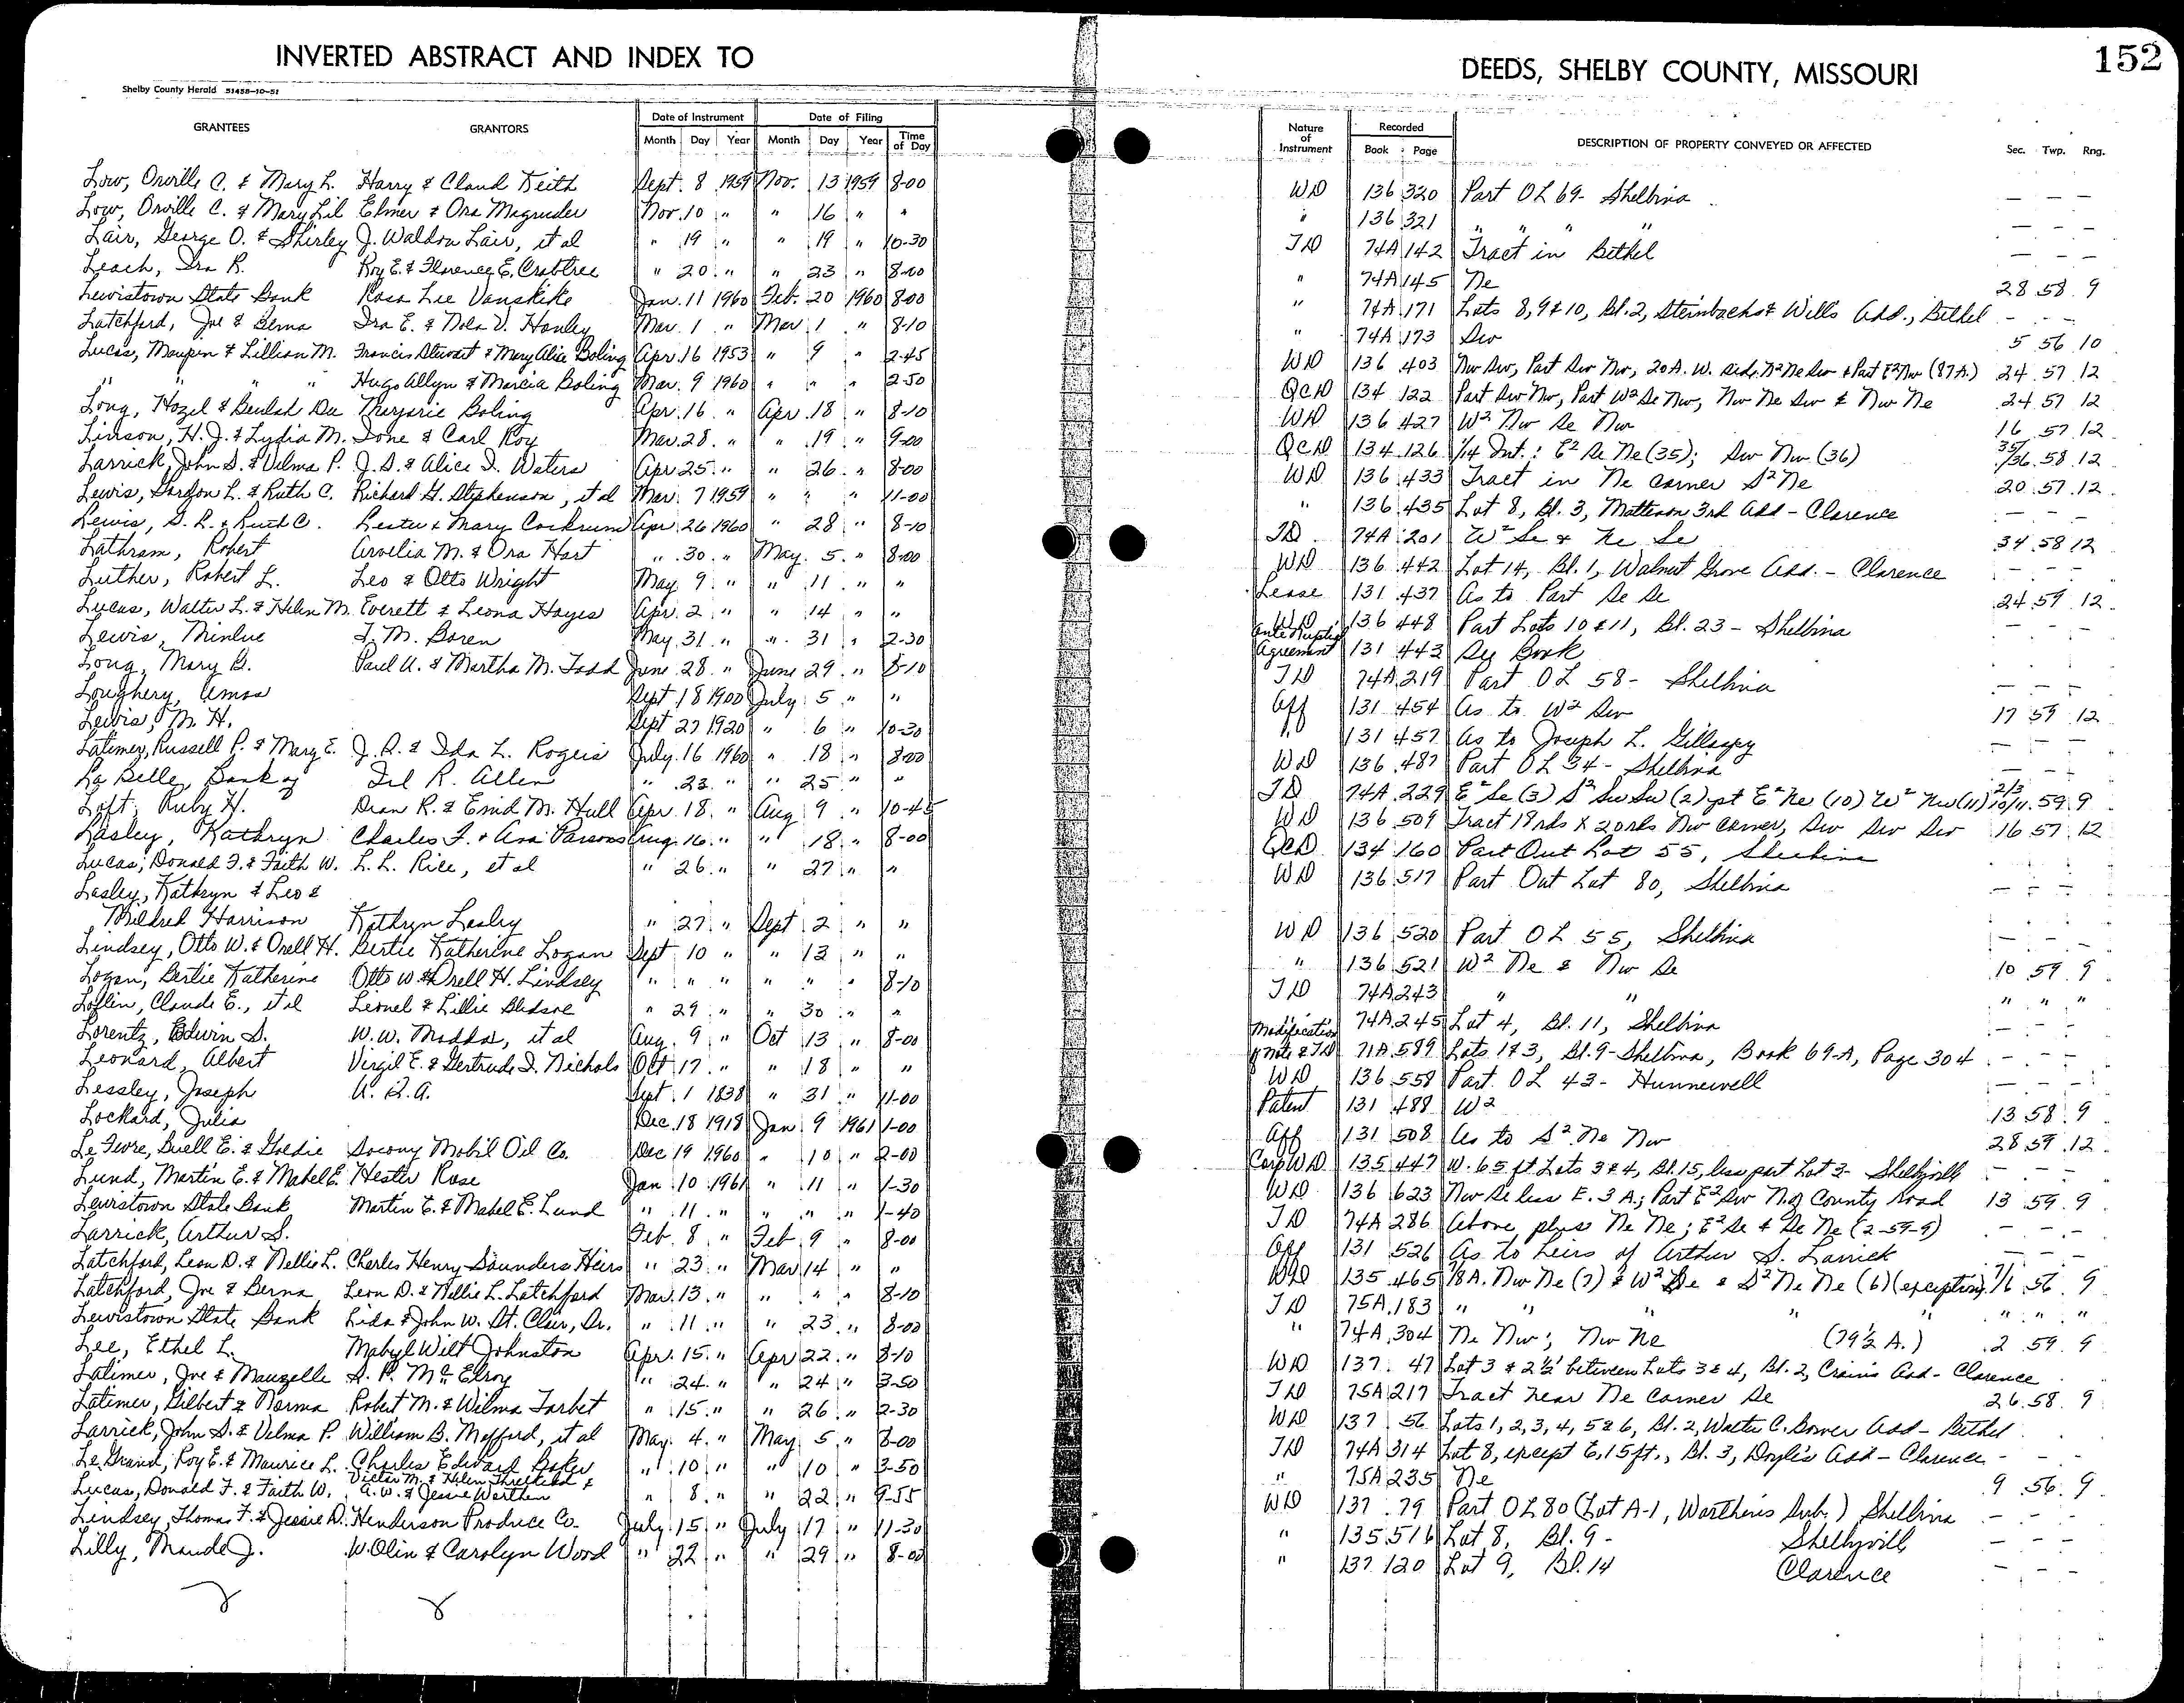 INVERTED ABSTRACT AND INDEX TO
Shelby County Herald 51458-10-51
GRANTEES GRANTORS Date of Instrument Date of Filing
Month Day Year Month Day Year Time of Day
Low, Orville C. & Mary L. Harry & Claud Keith Sept. 8 1959 Nov. 13 1959 8-00
Low, Orville C. & Mary Lil Elmer & Ora Magruder Nov. 10 " " 16 " "
Lair, George O. & Shirley J. Waldon Lair, et al " 19 " " 19 " 10-30
Leach, Ira R. Roy E. & Florence E. Crabtree " 20 " " 23 " 8-00
Lewistown State Bank Rosa Lee Vanskike Jan. 11 1960 Feb. 20 1960 8-00
Latchford, Joe & Berna Ira E. & Nola V. Hanley Mar. 1 " Mar 1 " 8-10
Lucas, Maupin & Lillian M. Francis Stewart & Mary Alice Boling Apr. 16 1953 " 9 " 2-45
" " " " Hugo Allyn & Marcia Boling Mar. 9 1960 " " " 2-50
Long, Hazel & Beulah Dee Marjorie Boling Apr. 16 " Apr. 18 " 8-10
Linson, H. J. & Lydia M. Ione & Carl Roy Mar. 28 " " 19 " 9-00
Larrick, John S. & Velma P. J. S. & Alice I. Waters Apr 25 " " 26 " 8-00
Lewis, Gordon L. & Ruth C. Richard G. Stephenson, et al Mar. 7 1959 " " " 11-00
Lewis, G. L. & Ruth C. Lester & Mary Cockrum Apr. 26 1960 " 28 " 8-10
Lathram, Robert Arvilia M. & Ora Hart " 30 " May. 5 " 8-00
Luther, Robert L. Leo & Otto Wright May 9 " " 11 " "
Lucas, Walter L. & Helen M. Everett & Leona Hayes Apr. 2 " " 14 " "
Lewis, Minlue T. M. Boren May 31 " " 31 " 2-30
Long, Mary B. Paul A. & Martha M. Todd June 28 " June 29 " 8-10
Loughery, Amos Sept 18 1900 July 5 " "
Lewis, M. H. Sept 27 1920 " 6 " 10-30
Latimer, Russell P. & Mary E. J. R. & Ida L. Rogers July 16 1960 " 18 " 8-00
La Belle, Bank of Del R. Allen " 23 " " 25 " "
Loft, Ruby H. Dean R. & Enid M. Hull Apr. 18 " Aug 9 " 10-45
Lasley, Kathryn Charles F. & Ava Parsons Aug. 16 " " 18 " 8-00
Lucas, Donald F. & Faith W. L. L. Rice, et al " 26 " " 27 " "
Lasley, Kathryn & Leo &
Mildred Harrison Kathryn Lasley " 27 " Sept 2 " "
Lindsey, Otto W. & Orell H. Bertie Katherine Logan Sept 10 " " 13 " "
Logan, Bertie Katherine Otto W. & Orell H. Lindsey " " " " " " 8-10
Loflin, Claude E., et al Lionel & Lillie Bledsoe " 29 " " 30 " "
Lorentz, Edwin S. W. W. Maddox, et al Aug. 9 " Oct 13 " 8-00
Leonard, Albert Virgil E. & Gertrude I. Nichols Oct 17 " " 18 " "
Lessley, Joseph U. S. A. Sept. 1 1838 " 31 " 11-00
Lockard, Julia Dec. 18 1918 Jan 9 1961 1-00
Le Fevre, Buell E. & Goldie Socony Mobil Oil Co. Dec 19 1960 " 10 " 2-00
Lund, Martin E. & Mabel E. Hester Rose Jan 10 1961 " 11 " 1-30
Lewistown State Bank Martin E. & Mabel E. Lund " 11 " " " " 1-40
Larrick, Arthur S. Feb. 8 " Feb 9 " 8-00
Latchford, Leon D. & Nellie L. Charles Henry Saunders Heirs " 23 " Mar 14 " "
Latchford, Joe & Berna Leon D. & Nellie L. Latchford Mar. 13 " " " " 8-10
Lewistown State Bank Lida & John W. St. Clair, Sr. " 11 " " 23 " 8-00
Lee, Ethel L. Mabyl Wilt Johnston Apr. 15 " Apr 22 " 8-10
Latimer, Joe & Mauzelle S. P. McElroy " 24 " " 24 " 3-50
Latimer, Gilbert & Norma Robert M. & Wilma Torbet " 15 " " 26 " 2-30
Larrick, John S. & Velma P. William B. Mefford, et al May. 4 " May 5 " 8-00
Le Grand, Roy E. & Maurice L. Charles Edward Baker " 10 " " 10 " 3-50
Victor M. & Helen Threlkeld &
Lucas, Donald F. & Faith W. A. W. & Jessie Worthen " 8 " " 22 " 9-55
Lindsey, Thomas F. & Jessie D. Henderson Produce Co. July 15 " July 17 " 11-30
Lilly, Maude J. W. Olin & Carolyn Wood " 22 " " 29 " 8-00
DEEDS, SHELBY COUNTY, MISSOURI
152
Nature of Instrument Recorded Book Page DESCRIPTION OF PROPERTY CONVEYED OR AFFECTED Sec. Twp. Rng.
WD 136 320 Part OL 69- Shelbina — — —
" 136 321 " " " " — — —
TD 74A 142 Tract in Bethel — — —
" 74A 145 Ne 28 58 9
" 74A 171 Lots 8, 9 & 10, Bl. 2, Steinbachs & Wills Add., Bethel - - -
" 74A 173 Sw 5 56 10
WD 136 403 Nw Sw, Part Sw Nw, 20A. W. side N2 Ne Sw & Part E2 Nw (87A.) 24 57 12
QCD 134 122 Part Sw Nw, Part W2 Se Nw, Nw Ne Sw & Nw Ne 24 57 12
WD 136 427 W2 Nw Se Nw 16 57 12
QCD 134 126 1/14 Int.: E2 Se Ne (35); Sw Nw (36) 35/36 58 12
WD 136 433 Tract in Ne corner S2 Ne 20 57 12
" 136 435 Lot 8, Bl. 3, Matteson 3rd Add - Clarence - - -
TD 74A 201 W2 Se & Ne Se 34 58 12
WD 136 442 Lot 14, Bl. 1, Walnut Grove Add. - Clarence - - -
Lease 131 437 As to Part Se Se 24 59 12
WD 136 448 Part Lots 10 & 11, Bl. 23 - Shelbina - - -
Ante Nuptial
Agreement 131 443 See Book - - -
TD 74A 219 Part OL 58 - Shelbina — — —
Aff 131 454 As to W2 Sw 17 59 12
" 131 457 As to Joseph L. Gillaspy — — —
WD 136 487 Part OL 34 - Shelbina — — —
TD 74A 229 E2 Se (3) S2 Sw Sw (2) pt E2 Ne (10) W2 Nw (11) 2/3 10/11 59 9
WD 136 509 Tract 19 rds X 20 rds Nw corner, Sw Sw Sw 16 57 12
QCD 134 160 Part Out Lot 55, Shelbina - - -
WD 136 517 Part Out Lot 80, Shelbina — — —
WD 136 520 Part OL 55, Shelbina — — —
" 136 521 W2 Ne & Nw Se 10 59 9
TD 74A 243 " " " " "
" 74A 245 Lot 4, Bl. 11, Shelbina — — —
Modification
of Note & TD 71A 589 Lots 1 & 3, Bl. 9 - Shelbina, Book 69-A, Page 304 - - -
WD 136 558 Part OL 43 - Hunnewell — — —
Patent 131 488 W2 13 58 9
Aff 131 508 As to S2 Ne Nw 28 59 12
Corp WD 135 447 W. 65 ft. Lots 3 & 4, Bl. 15, less part Lot 3 - Shelbyville - - -
WD 136 623 Nw Se less E. 3 A.; Part E2 Sw N of County Road 13 59 9
TD 74A 286 Above, plus Ne Ne; E2 Se & Se Ne (2-59-9) - - -
Aff 131 526 As to heirs of Arthur S. Larrick — — —
WD 135 465 18A. Nw Ne (7) & W2 Se & S2 Ne Ne (6) (exception) 7/6 56 9
TD 75A 183 " " " " " " "
" 74A 304 Ne Nw; Nw Ne (79½ A.) 2 59 9
WD 137 47 Lot 3 & 2½' between Lots 3 & 4, Bl. 2, Crains Add - Clarence
TD 75A 217 Tract near Ne corner Se 26 58 9
WD 137 56 Lots 1, 2, 3, 4, 5 & 6, Bl. 2, Walter C. Bower Add - Bethel
TD 74A 314 Lot 8, except E. 15 ft., Bl. 3, Doyle's Add - Clarence - - -
" 75A 235 Ne 9 56 9
WD 137 79 Part OL 80 (Lot A-1, Worthen's Sub.) Shelbina - - -
" 135 516 Lot 8, Bl. 9 - Shelbyville — — —
" 137 120 Lot 9, Bl. 14 Clarence - - -